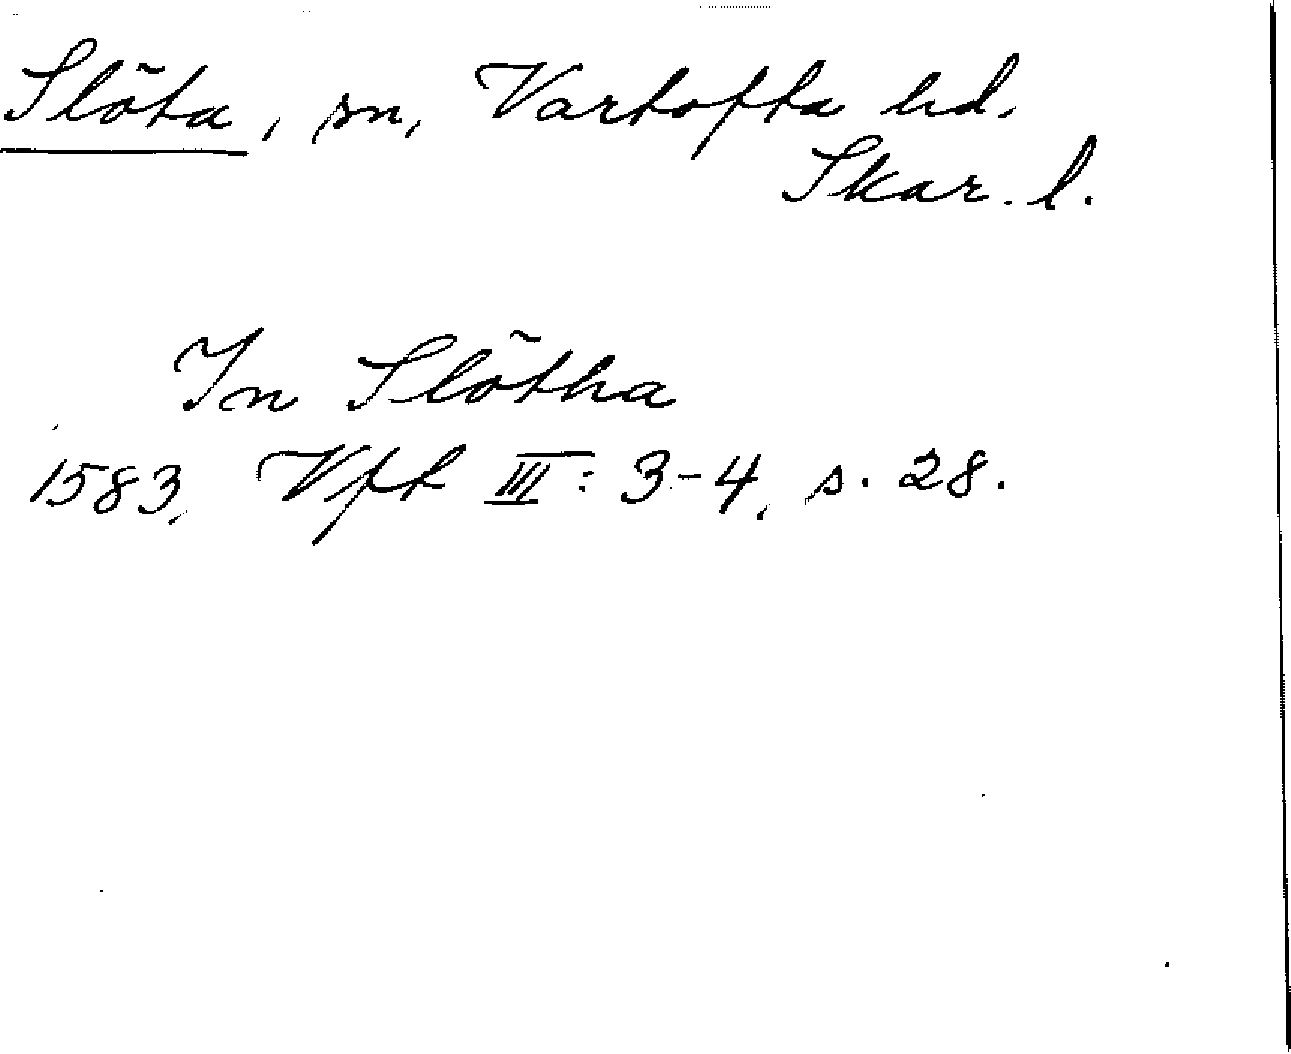 Slöta, sn, Vartofta hd.
Skar. l.
In Slötha
1583, Vft III: 3-4, s. 28.